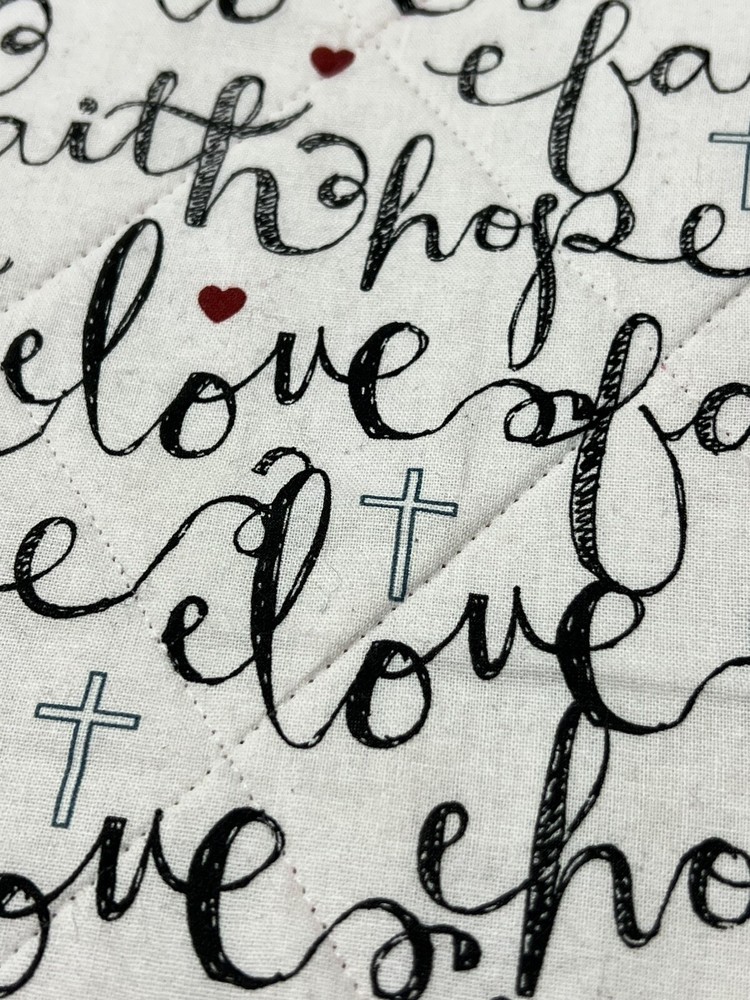 fa
aith hope
love fa
e love
ove ho